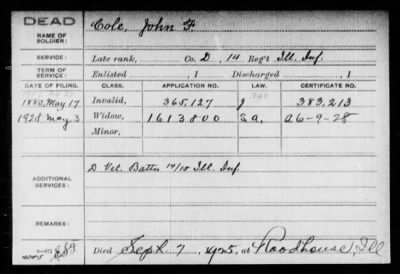 DEAD
NAME OF SOLDIER: Cole, John F.
SERVICE: Late rank, Co. D, 14 Reg't Ill. Inf.
TERM OF SERVICE: Enlisted , 1 Discharged , 1
DATE OF FILING. CLASS. APPLICATION NO. LAW. CERTIFICATE NO.
1880 May 17 Invalid, 365,127 J 383,213
1928 May 3 Widow, 1613800 S a, a6-9-28
Minor,
ADDITIONAL SERVICES: D Vet. Battn 14/15 Ill. Inf.
REMARKS:
Died Sept. 7, 1925, at Roodhouse, Ill